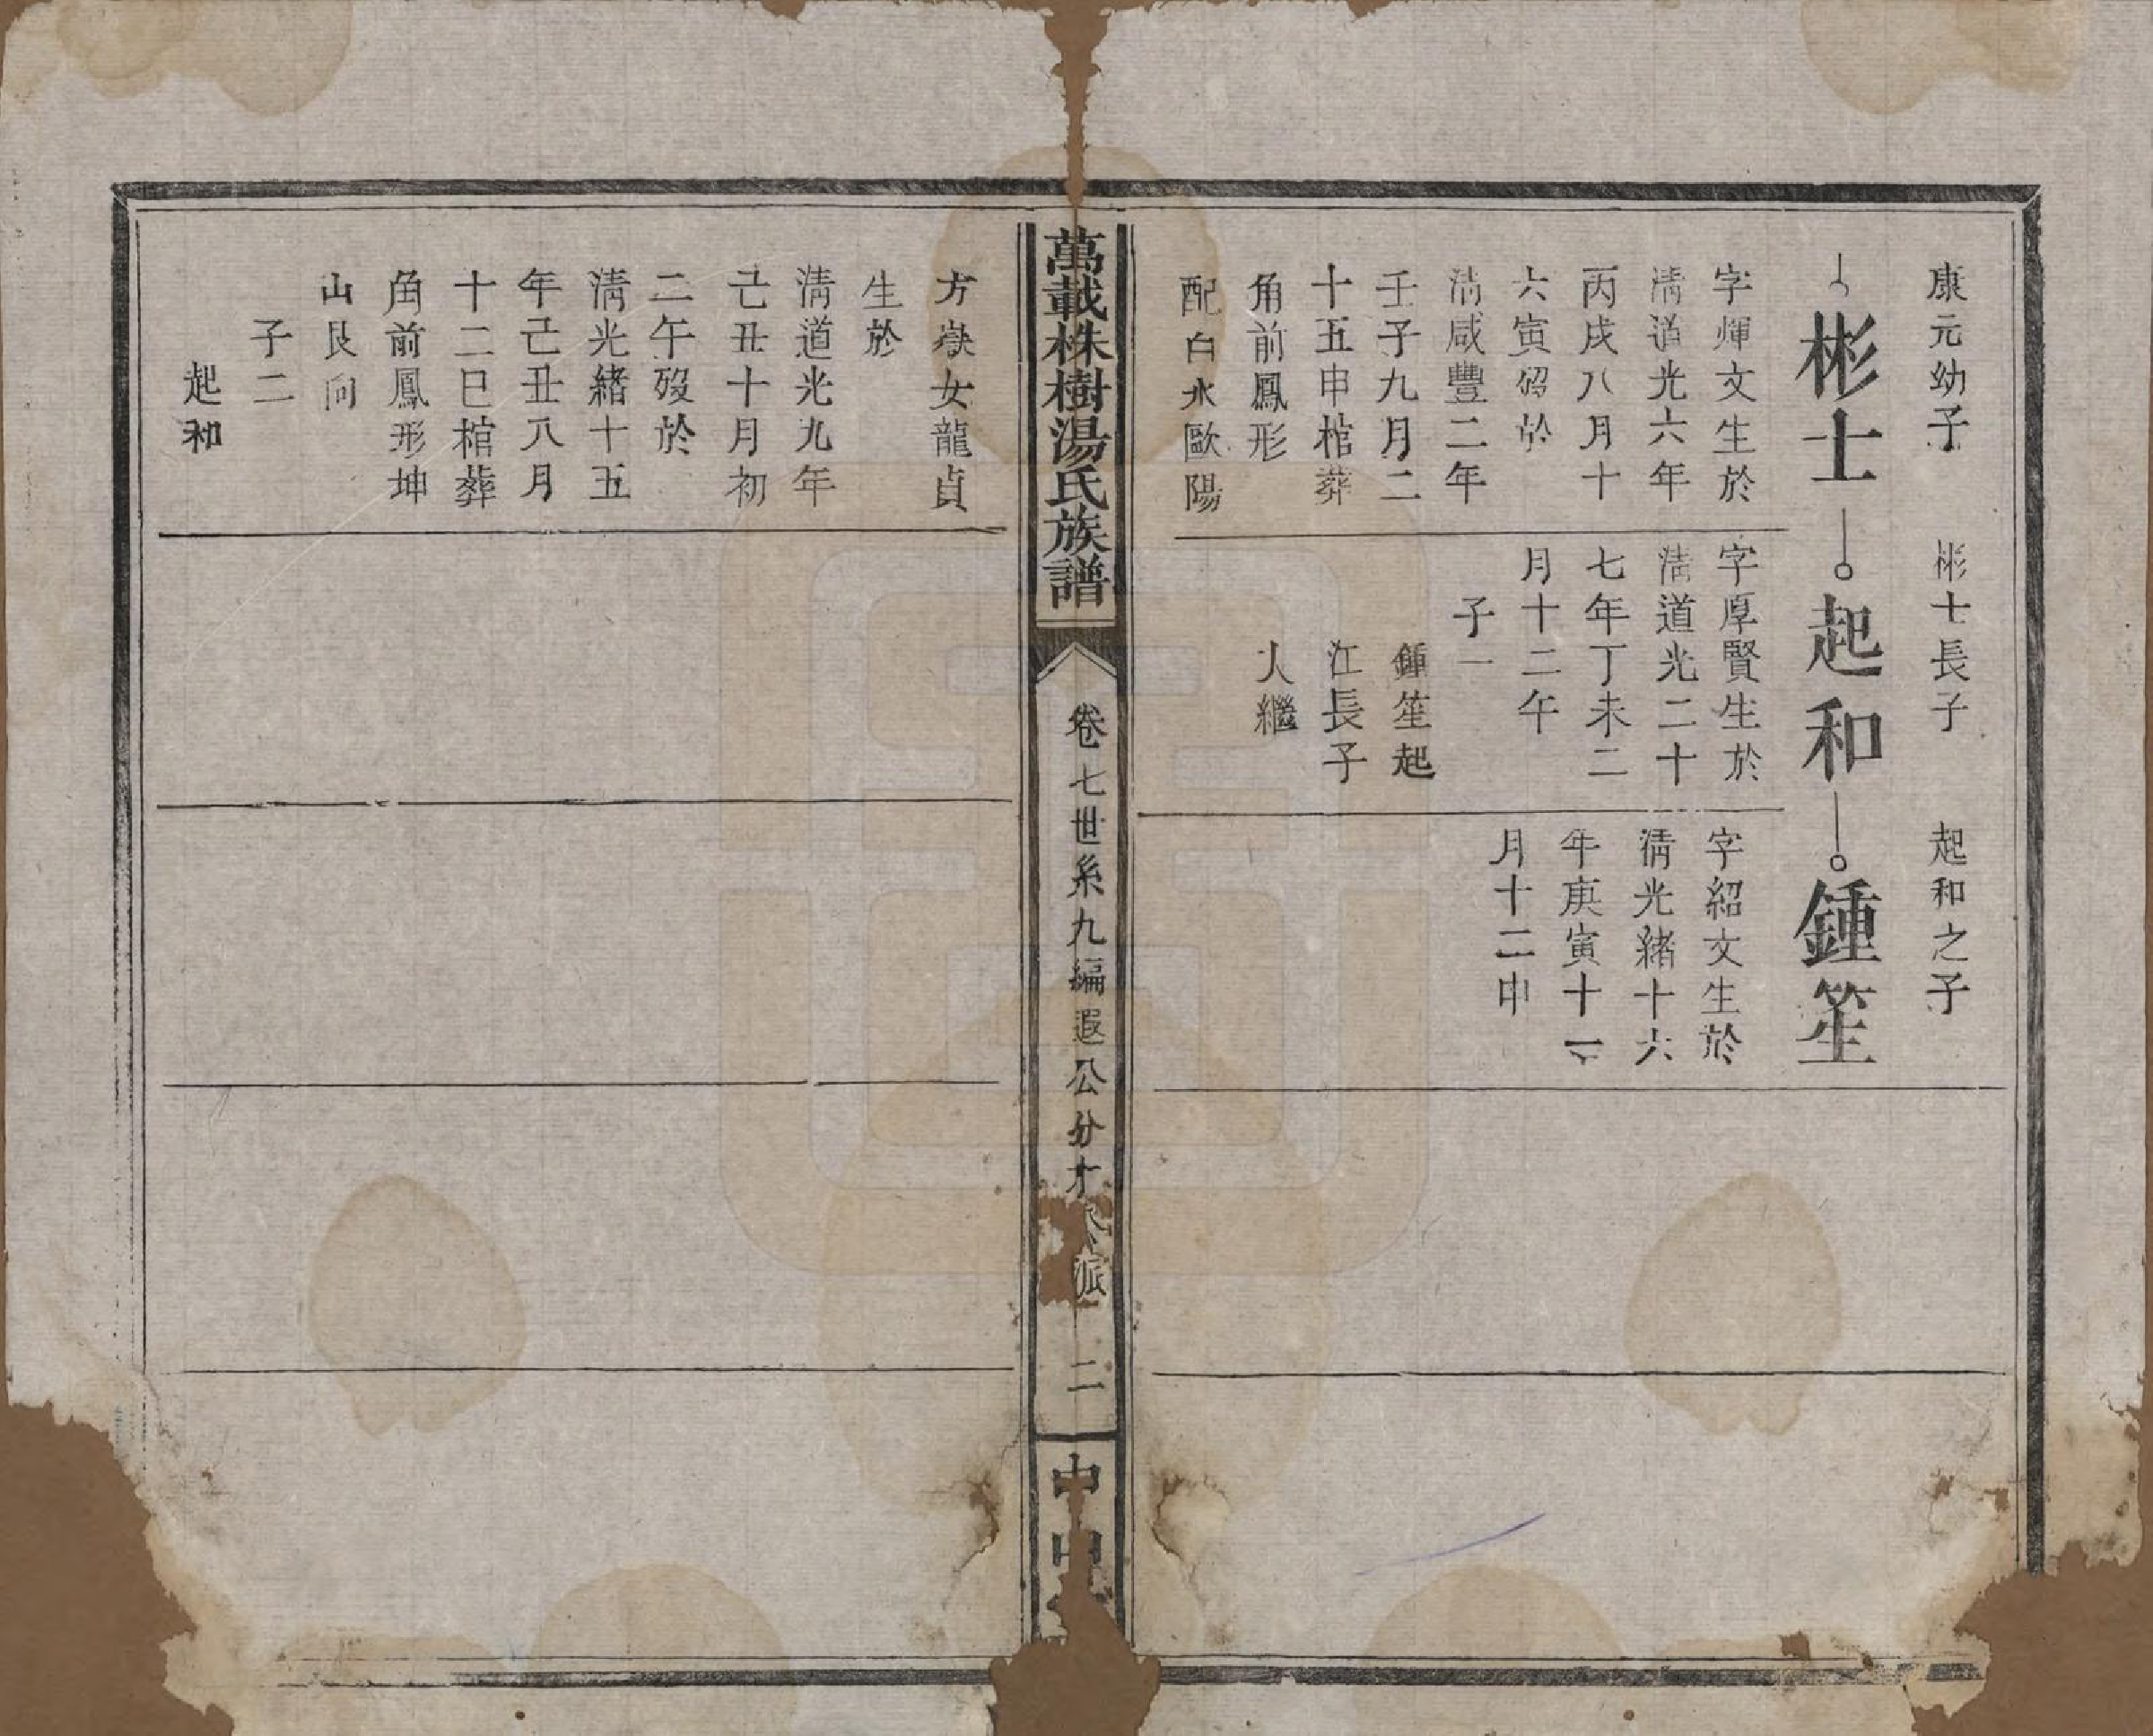 康元幼子
彬士
字煇文生於
淸道光六年
丙戌八月十
六寅歿於
淸咸豐二年
壬子九月二
十五申棺葬
角前鳳形
配白水歐陽
彬士長子
起和
字厚賢生於
淸道光二十
七年丁未二
月十二午
子一
鍾笙起
江長子
入繼
起和之子
鍾笙
字紹文生於
淸光緒十六
年庚寅十二
月十二申
萬載株樹湯氏族譜
卷七世系九編遐公分才
派
二
中
方嶽女龍貞
生於
淸道光九年
己丑十月初
二午歿於
淸光緒十五
年己丑八月
十二巳棺葬
角前鳳形坤
山艮向
子二
起和